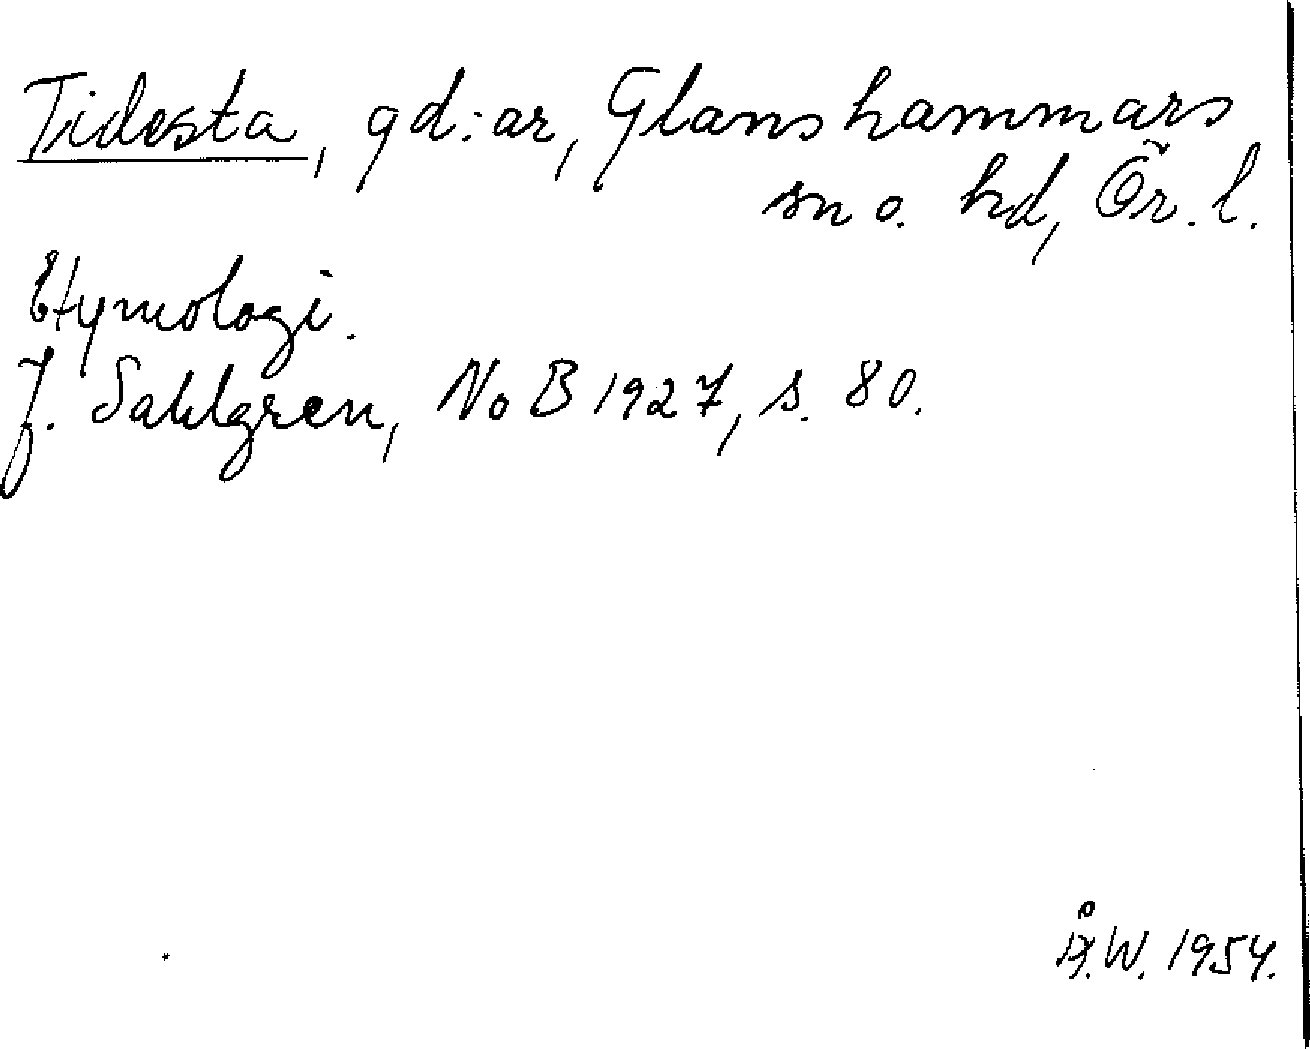 Tidesta, gd:ar, Glanshammars
sn o. hd, Ör. l.
Etymologi.
J. Sahlgren, NoB 1927, s. 80.
Å.W. 1954.